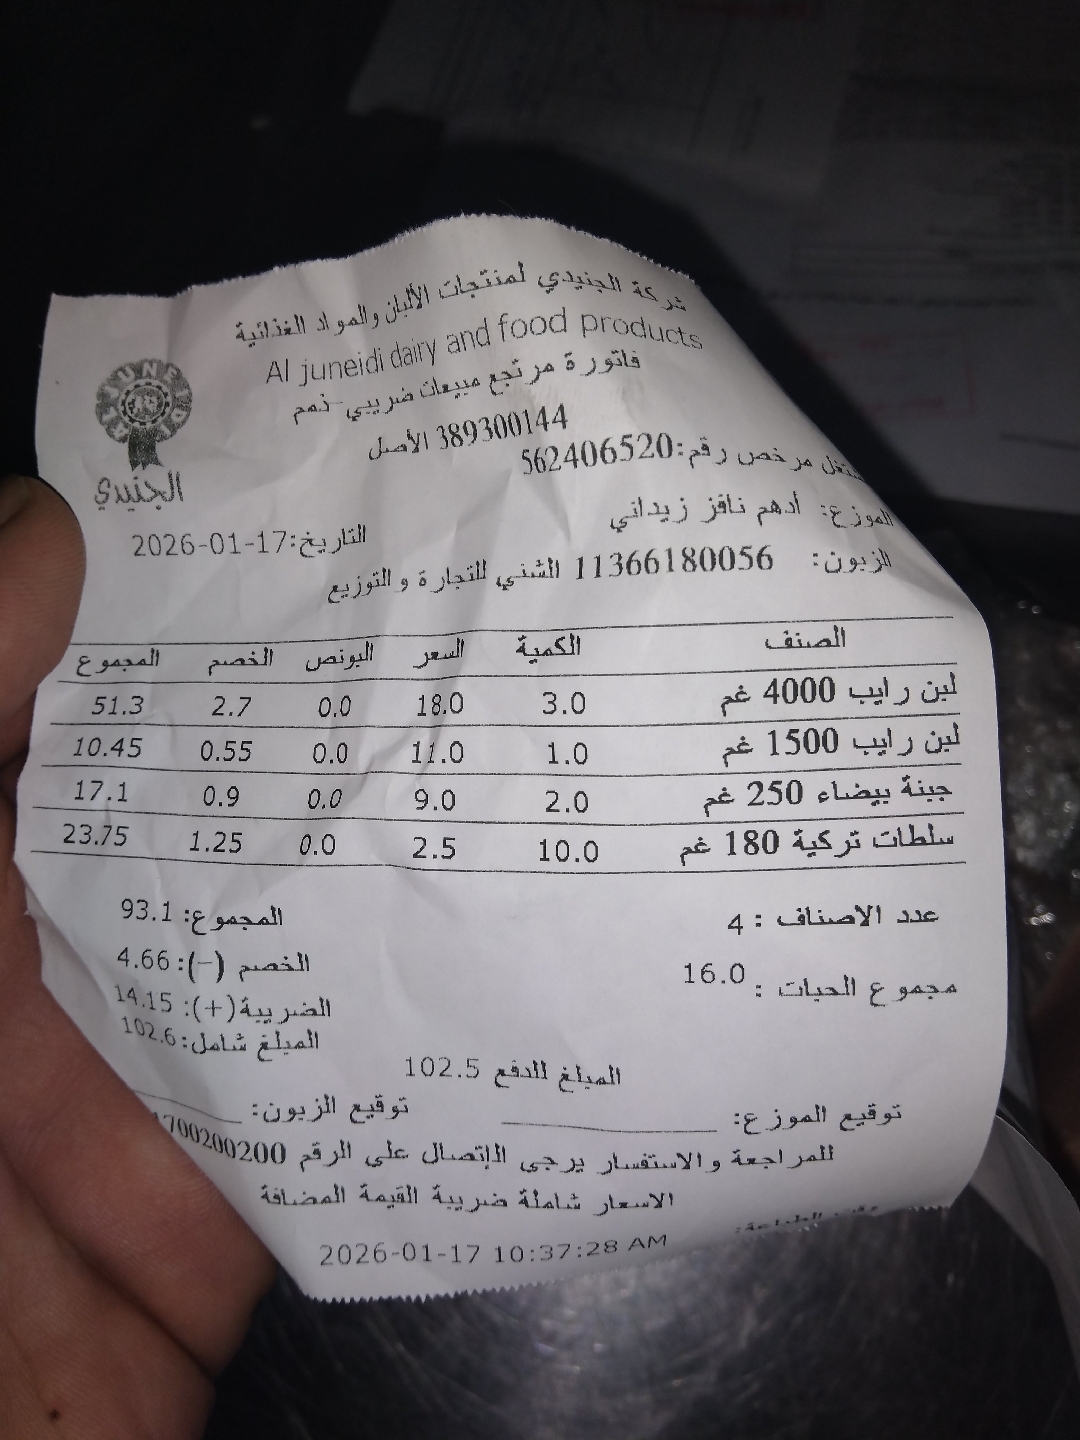 شركة الجنيدي لمنتجات الألبان والمواد الغذائية
Al juneidi dairy and food products
فاتورة مرتجع مبيعات ضريبي-ذمم
389300144 الأصل
مشتغل مرخص رقم:562406520
الجنيدي
الموزع: أدهم نافز زيداني
التاريخ:2026-01-17
الزبون: 11366180056 الشني للتجارة والتوزيع
الصنف الكمية السعر البونص الخصم المجموع
لبن رايب 4000 غم 3.0 18.0 0.0 2.7 51.3
لبن رايب 1500 غم 1.0 11.0 0.0 0.55 10.45
جبنة بيضاء 250 غم 2.0 9.0 0.0 0.9 17.1
سلطات تركية 180 غم 10.0 2.5 0.0 1.25 23.75
عدد الاصناف : 4 المجموع: 93.1
الخصم (-): 4.66
مجموع الحبات : 16.0 الضريبة(+): 14.15
المبلغ شامل: 102.6
المبلغ للدفع 102.5
توقيع الموزع: توقيع الزبون:
للمراجعة والاستفسار يرجى الإتصال على الرقم 1700200200
الاسعار شاملة ضريبة القيمة المضافة
وقت الطباعة:
2026-01-17 10:37:28 AM